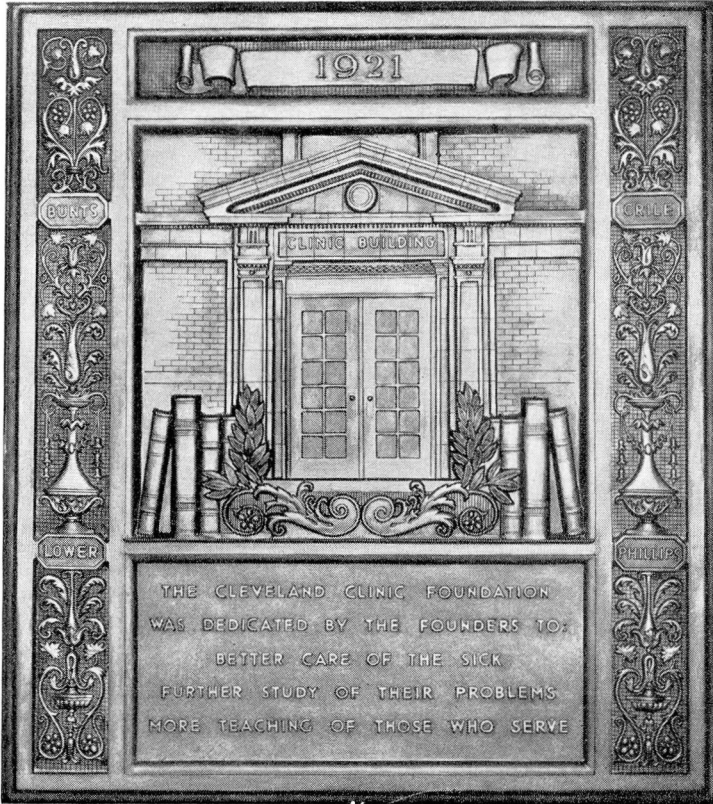 1921
BUNTS
CRILE
CLINIC BUILDING
LOWER
PHILLIPS
THE CLEVELAND CLINIC FOUNDATION
WAS DEDICATED BY THE FOUNDERS TO:
BETTER CARE OF THE SICK
FURTHER STUDY OF THEIR PROBLEMS
MORE TEACHING OF THOSE WHO SERVE